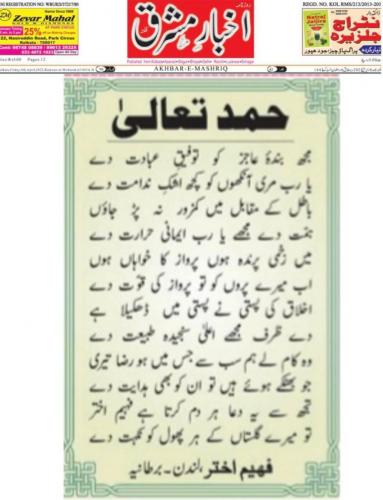 Zevar Mahal
25%
اخبارِ مشرق
REGD. NO. KOL RMS/213/2013-201
AKHBAR-E-MASHRIQ
حمد تعالیٰ
مجھ بندۂ عاجز کو توفیقِ عبادت دے
یا رب مری آنکھوں کو کچھ اشکِ ندامت دے
باطل کے مقابل میں کمزور نہ پڑ جاؤں
ہمت دے مجھے یا رب ایمانی حرارت دے
میں زخمی پرندہ ہوں پرواز کا خواہاں ہوں
اب میرے پروں کو تو پرواز کی قوت دے
اخلاق کی پستی نے پستی میں ڈھکیلا ہے
دے ظرف مجھے اعلیٰ سنجیدہ طبیعت دے
وہ کام لے ہم سب سے جس میں ہو رضا تیری
جو بھٹکے ہوئے ہیں تو ان کو بھی ہدایت دے
تجھ سے یہ دعا ہر دم کرتا ہے فہیم اختر
تو میرے گلستاں کے ہر پھول کو نکہت دے
فہیم اختر، لندن۔ برطانیہ